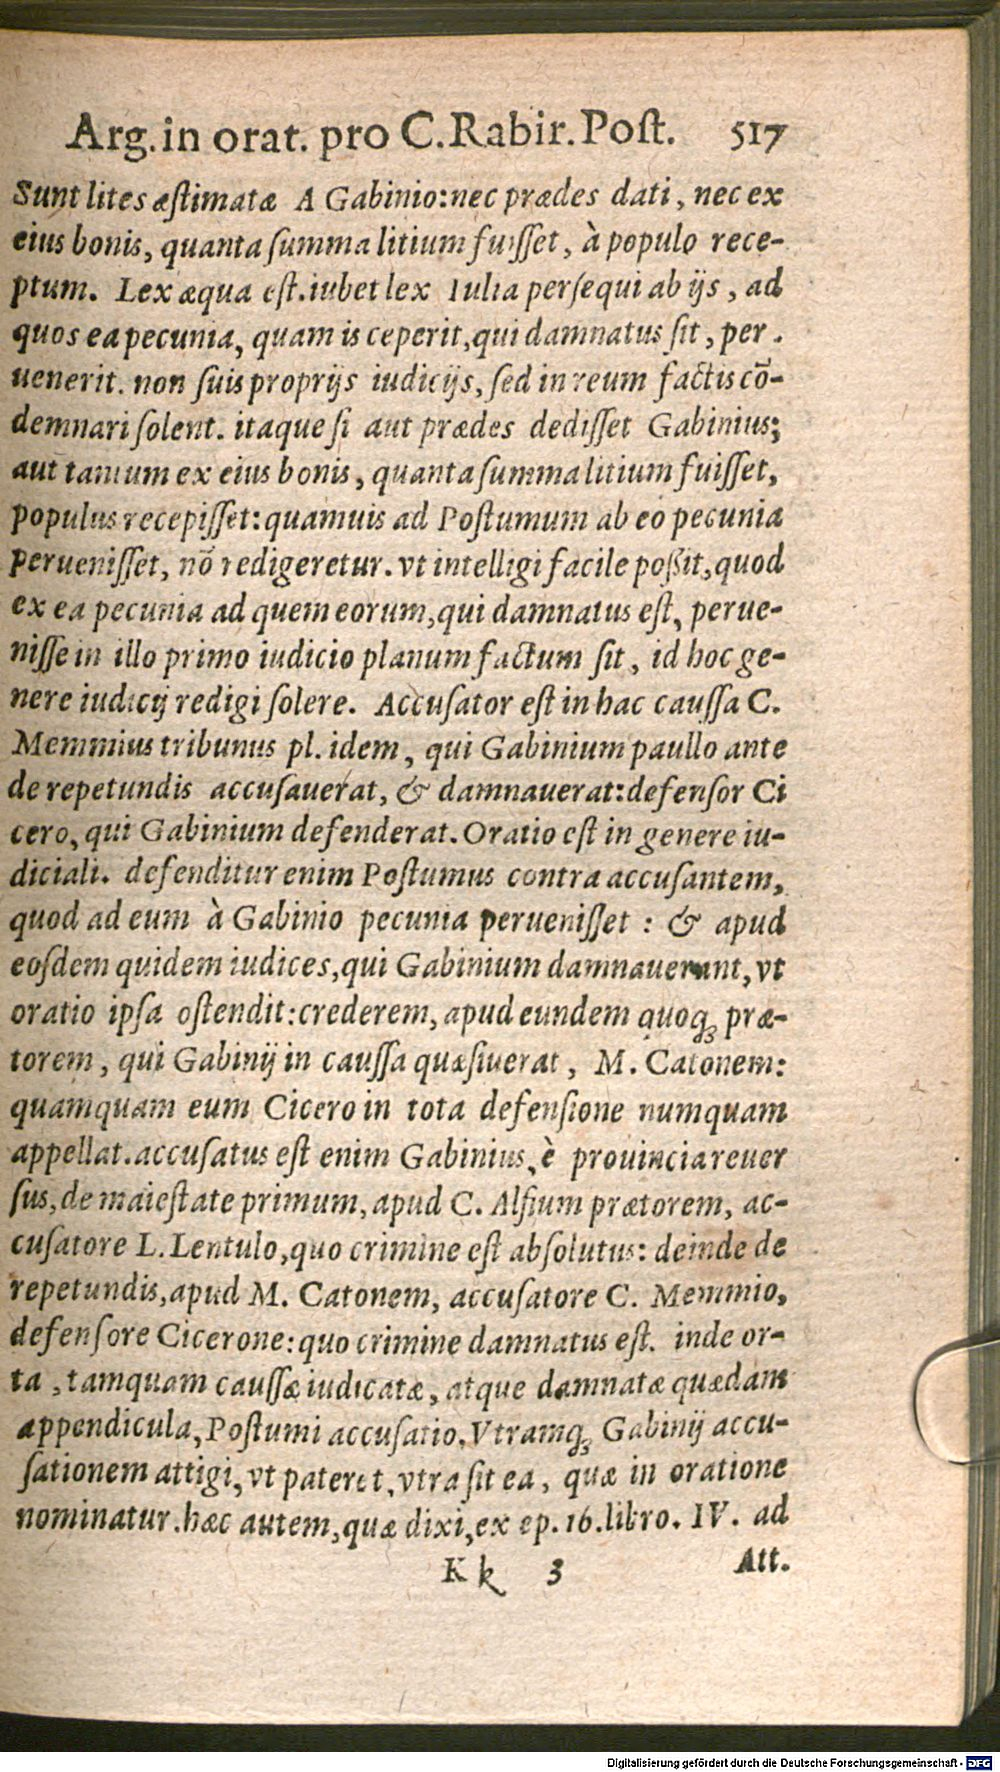 Arg. in orat. pro C. Rabir. Post. 517
Sunt lites æstimatæ A Gabinio: nec prædes dati, nec ex
eius bonis, quanta summa litium fuisset, à populo rece-
ptum. Lex æqua est. iubet lex Iulia persequi ab ijs, ad
quos ea pecunia, quam is ceperit, qui damnatus sit, per.
uenerit. non suis proprijs iudicijs, sed in reum factis cō-
demnari solent. itaque si aut prædes dedisset Gabinius;
aut tantum ex eius bonis, quanta summa litium fuisset,
populus recepisset: quamuis ad Postumum ab eo pecunia
peruenisset, nō redigeretur. vt intelligi facile possit, quod
ex ea pecunia ad quem eorum, qui damnatus est, perue-
nisse in illo primo iudicio planum factum sit, id hoc ge-
nere iudicij redigi solere. Accusator est in hac caussa C.
Memmius tribunus pl. idem, qui Gabinium paullo ante
de repetundis accusauerat, & damnauerat: defensor Ci
cero, qui Gabinium defenderat. Oratio est in genere iu-
diciali. defenditur enim Postumus contra accusantem,
quod ad eum à Gabinio pecunia peruenisset: & apud
eosdem quidem iudices, qui Gabinium damnauerunt, vt
oratio ipsa ostendit: crederem, apud eundem quoqꝫ præ-
torem, qui Gabinij in caussa quæsiuerat, M. Catonem:
quamquam eum Cicero in tota defensione numquam
appellat. accusatus est enim Gabinius, è prouincia reuer
sus, de maiestate primum, apud C. Alfium prætorem, ac-
cusatore L. Lentulo, quo crimine est absolutus: deinde de
repetundis, apud M. Catonem, accusatore C. Memmio,
defensore Cicerone: quo crimine damnatus est. inde or-
ta, tamquam caussæ iudicatæ, atque damnatæ quædam
appendicula, Postumi accusatio. Vtramqꝫ Gabinij accu-
sationem attigi, vt pateret, vtra sit ea, quæ in oratione
nominatur. hæc autem, quæ dixi, ex ep. 16. libro. IV. ad
Kk 3 Att.
Digitalisierung gefördert durch die Deutsche Forschungsgemeinschaft - DFG